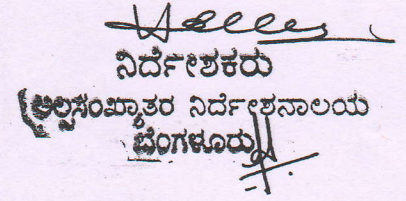 ನಿರ್ದೇಶಕರು
(ಅಲ್ಪಸಂಖ್ಯಾತರ ನಿರ್ದೇಶನಾಲಯ
ಬೆಂಗಳೂರು